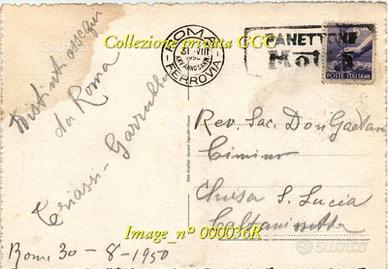 Collezione privata GGC
ROMA
FERROVIA
31 VIII
1950
ANNO SANTO
PANETTONE
Motta
POSTE ITALIANE
Distinti ossequi
da Roma
Rev. Sac. Don Gaetano
Cimino
Chiesa S. Lucia
Caltanissetta
Image_n° 000036R
Roma 30 - 8 - 1950
subito